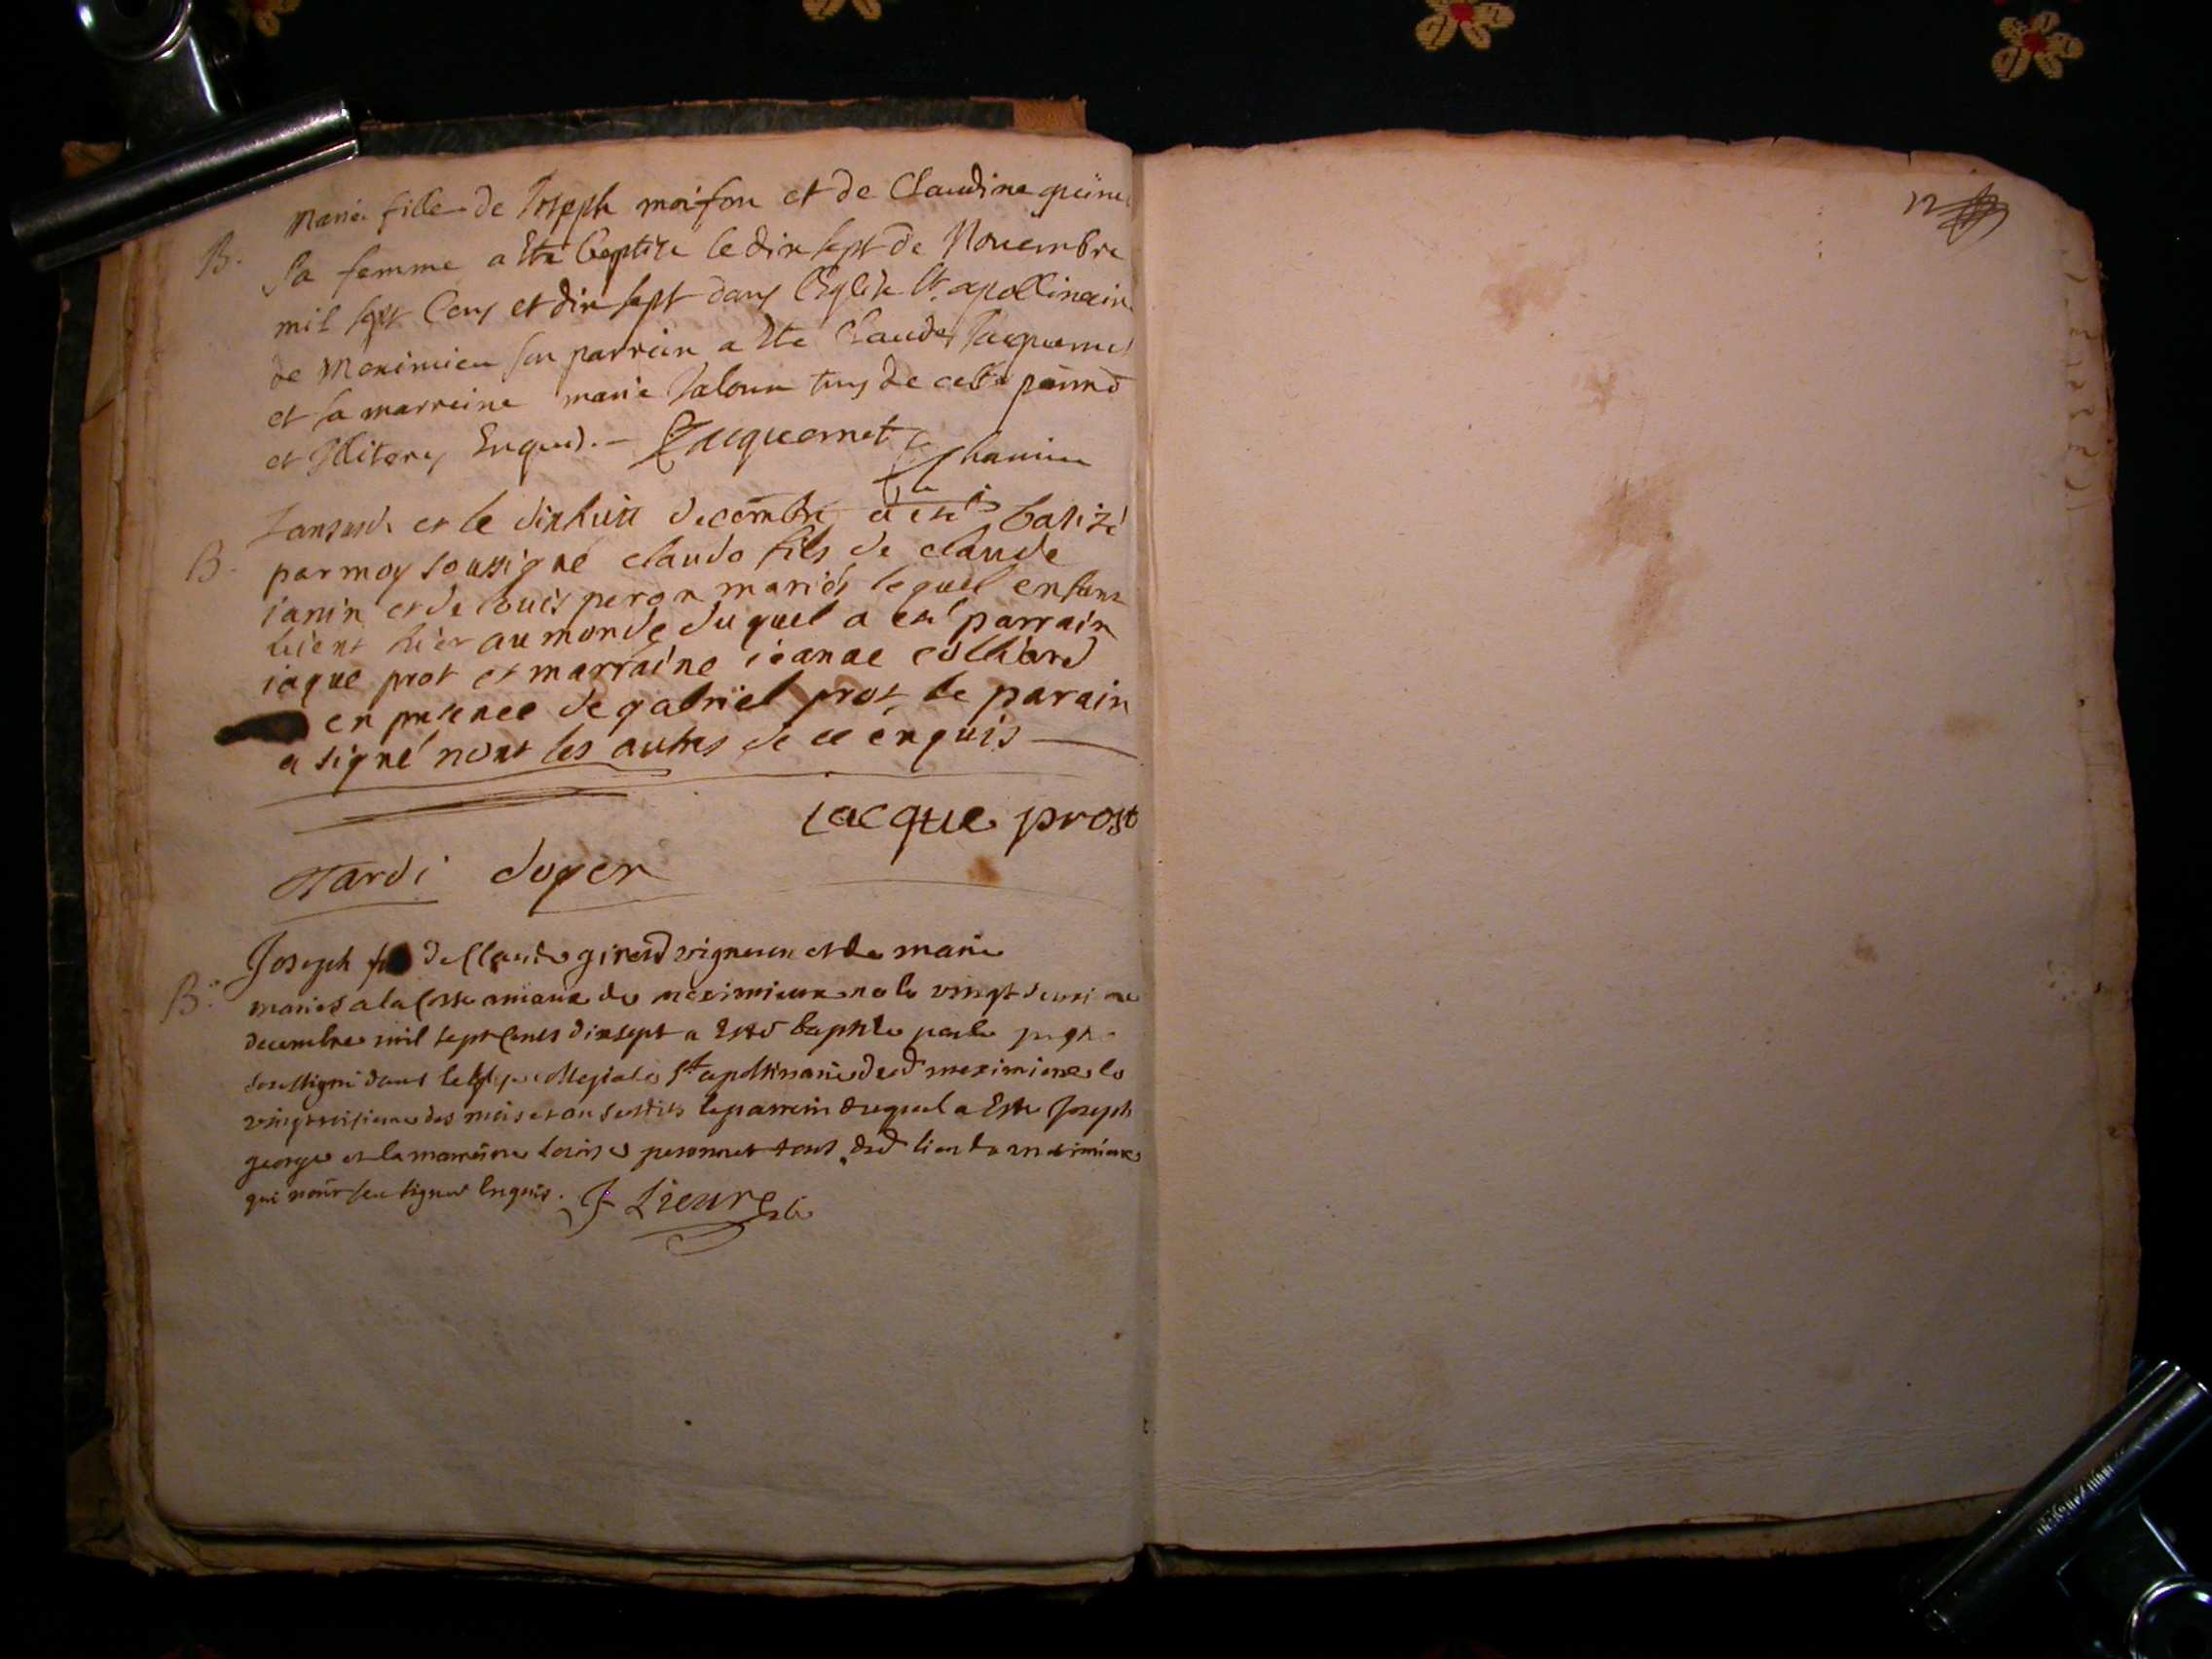 B. Marie fille de Joseph moifon et de Claudine
sa femme a Eté baptise le dix sept de Novembre
mil sept Cens et dix sept dans l'Eglise St. apollinaire
de Meximieu son parrein a Eté Claude Jacquemet
et sa marreine marie tous de cette
et Illiterez Enquis. - Jacquemet
B. Lan susd. et le dixhuit decembre a esté batizé
par moy soussigné claude fils de claude
ianin et de louis peron mariés lequel enfant
vient hier au monde duquel a esté parrain
iaque prot et marraine ieanne colliard
en presence de gabriel prot le parain
a signé nont les autres de ce enquis
Jacque prost
Tardi doyen
B. Joseph de Claude girerd vigneron et de marie
mariés a la de meximieux ne le vingt deuxieme
decembre mil sept Cents dixsept a Esté baptisé par le
soussigné dans collegiale St apollinaire dud meximieux le
vingt troisieme des mois et an susdits le parrein duquel a Esté Joseph
george et la marreine Louise peronnet tous dud lieu de meximieux
qui nont sceu signer Enquis. J. Lieure
12